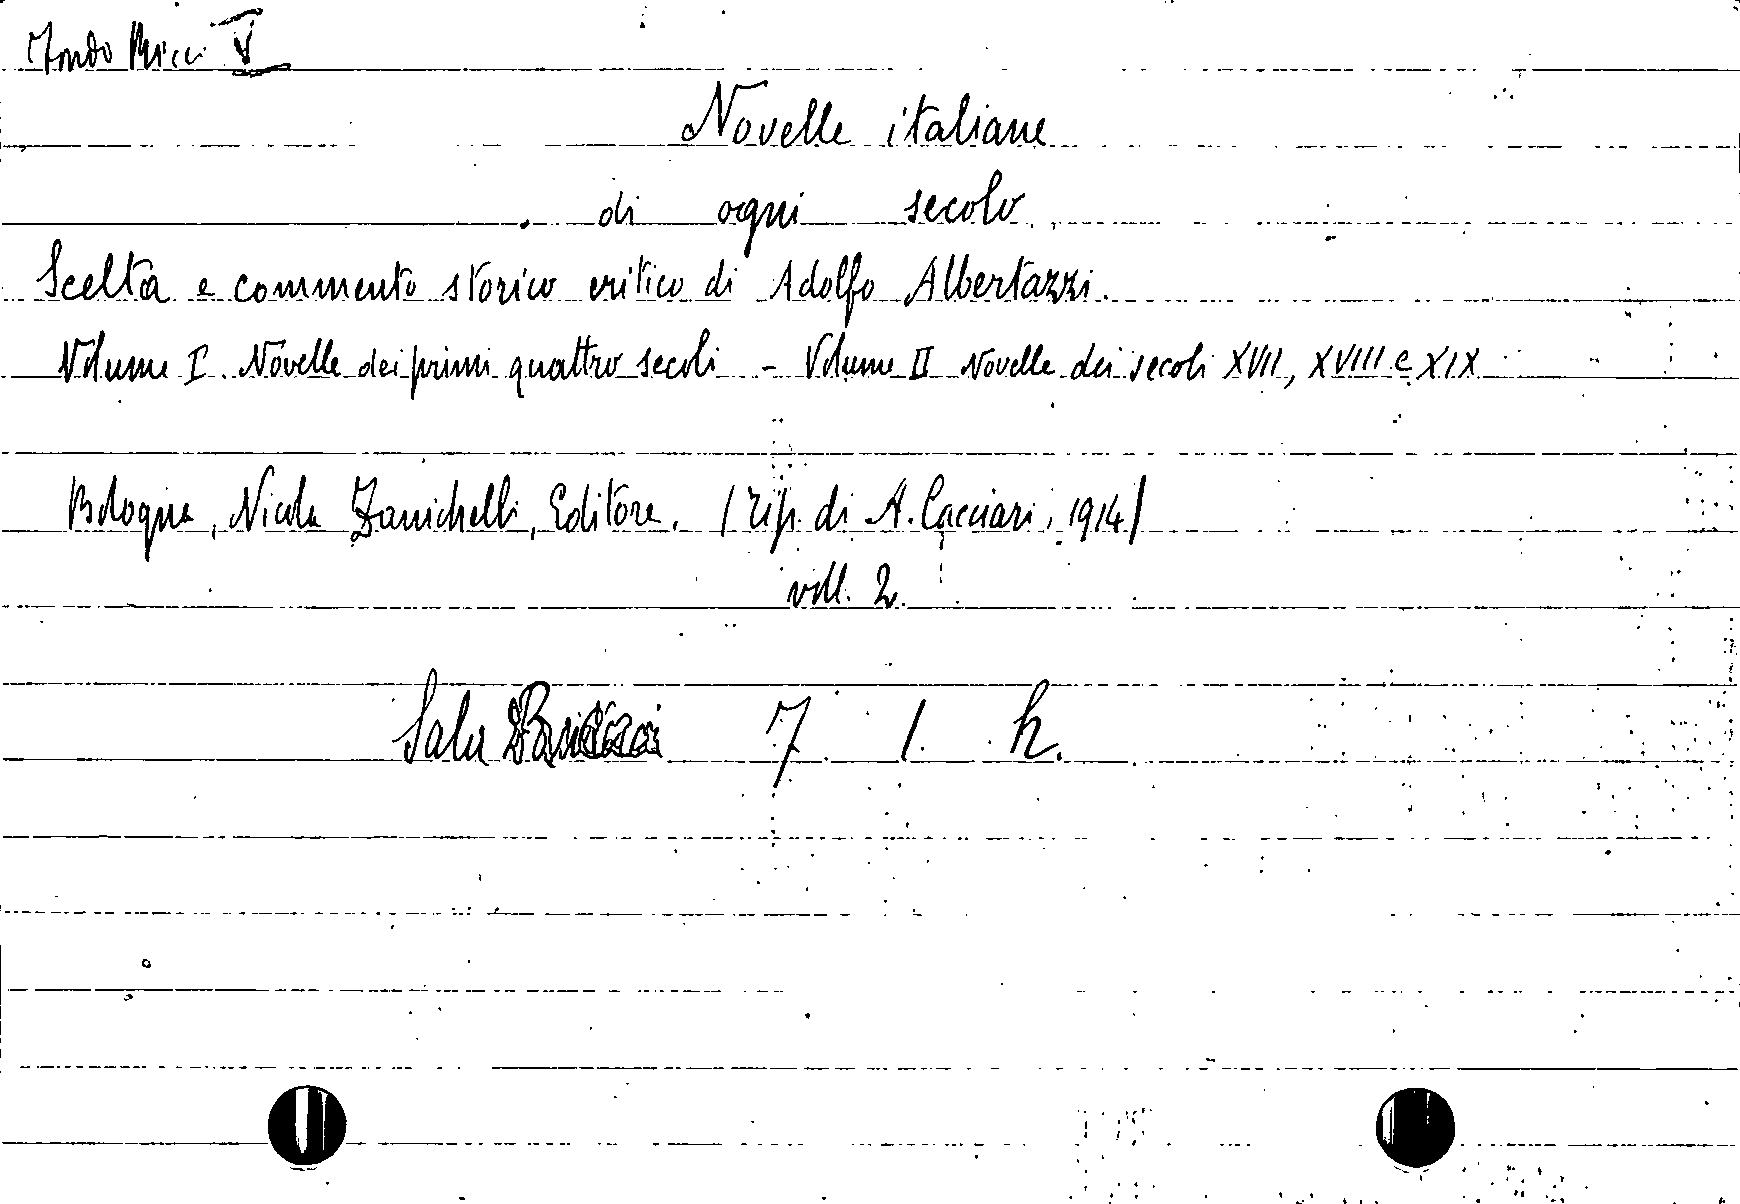 Fondo Ricci V
Novelle italiane
di ogni secolo
Scelta e commento storico critico di Adolfo Albertazzi.
Volume I. Novelle dei primi quattro secoli - Volume II Novelle dei secoli XVII, XVIII e XIX
Bologna, Nicola Zanichelli, Editore. (Tip. di A. Cacciari, 1914)
voll. 2.
Sala 7 1 h.